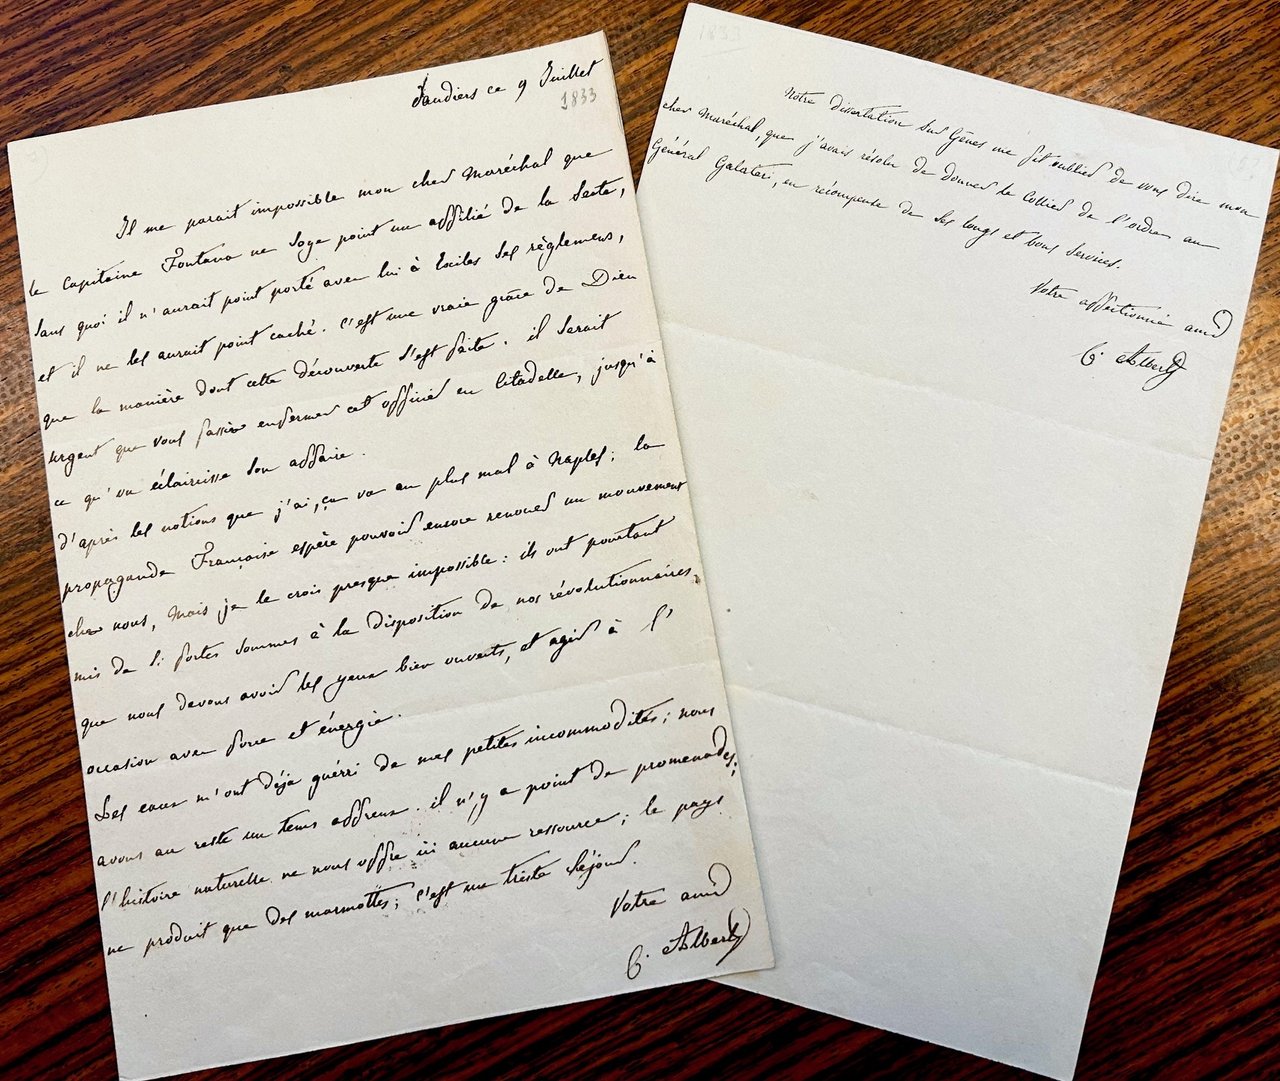 ce 9 Juillet
1833
Il me parait impossible mon cher Maréchal que
le Capitaine Fontana ne soye point un affilié de la Secte,
sans quoi il n'aurait point porté avec lui à Exiles ses règlemens,
et il ne les aurait point caché. c'est une vraie grâce de Dieu
que la manière dont cette découverte s'est faite. il serait
urgent que vous fassiez enfermer cet officier en Citadelle, jusqu'à
ce qu'on éclaircisse son affaire.
D'après les notions que j'ai, ça va au plus mal à Naples; la
propagande Française espère pouvoir encore renouer un mouvement
chez nous, mais je le crois presque impossible: ils ont pourtant
mis de si fortes sommes à la disposition de nos révolutionnaires,
que nous devons avoir les yeux bien ouverts, et agir à l'
occasion avec force et énergie.
Les eaux m'ont déjà guérri de mes petites incommodités; nous
avons au reste un tems affreux. il n'y a point de promenades;
l'histoire naturelle ne nous offre ici aucune ressource; le pays
ne produit que des marmottes; c'est un triste séjour.
Votre ami
C. Albert
1833
Notre dissertation sur Gênes me fit oublier de vous dire mon
cher Maréchal, que j'avais résolu de donner le Collier de l'ordre au
Général Galateri, en récompense de ses longs et bons services.
Votre affectionné ami
C. Albert